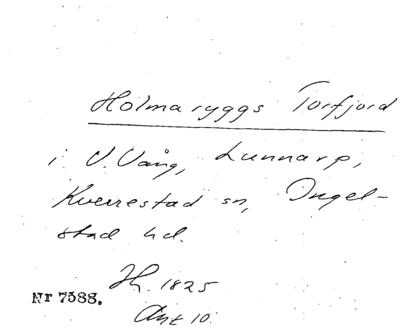 Holmaryggs Torfjord
i V. Vång, Lunnarp,
Kverrestad sn, Ingel-
stad hd.
Hs. 1825
Nr 7588.
Ant 10.